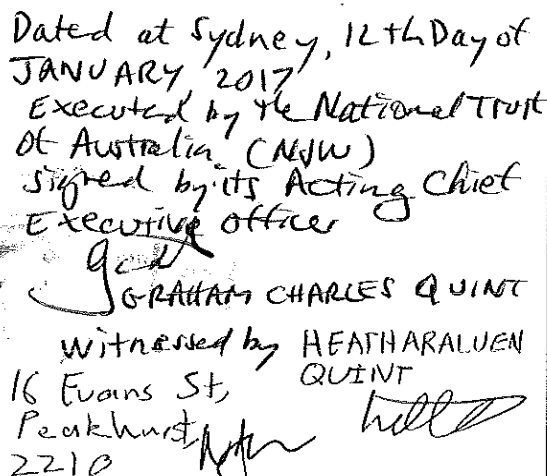 Dated at Sydney, 12th Day of
JANUARY, 2017
Executed by the National Trust
Of Australia (NSW)
signed by its Acting Chief
Executive officer
GRAHAM CHARLES QUINT
witnessed by HEATHARALUEN
QUINT
16 Evans St,
Peakhurst,
2210